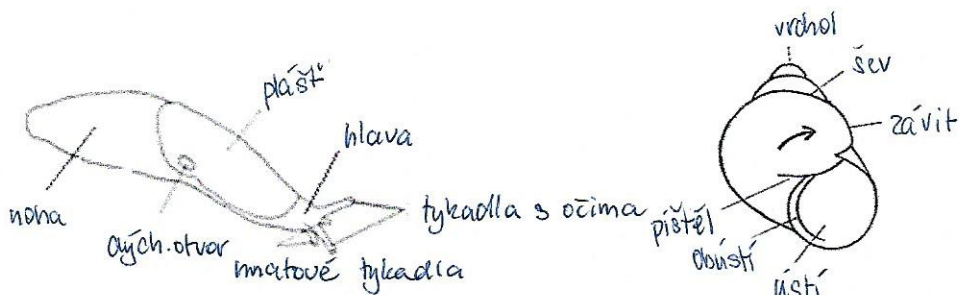 plášť
hlava
noha
dých.otvor
tykadla s očima
hmatové tykadla
vrchol
šev
závit
píštěl
obústí
ústí